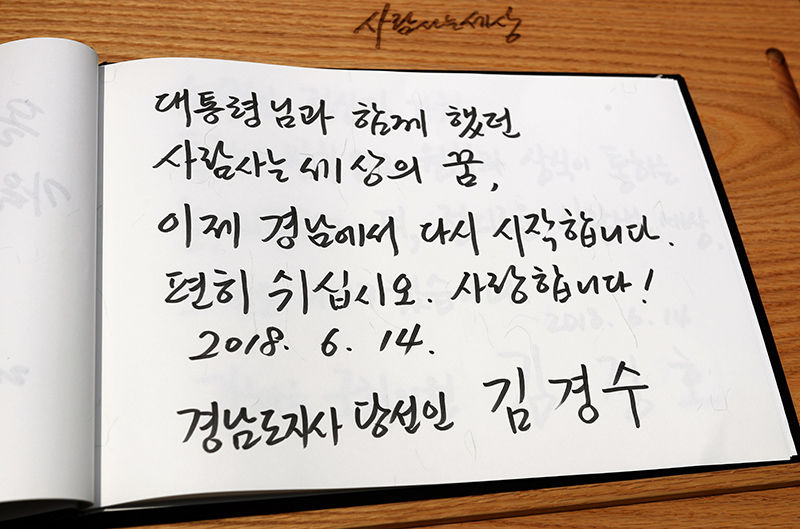 사람사는세상
대통령님과 함께 했던
사람사는 세상의 꿈,
이제 경남에서 다시 시작합니다.
편히 쉬십시오. 사랑합니다!
2018. 6. 14.
경남도지사 당선인 김경수